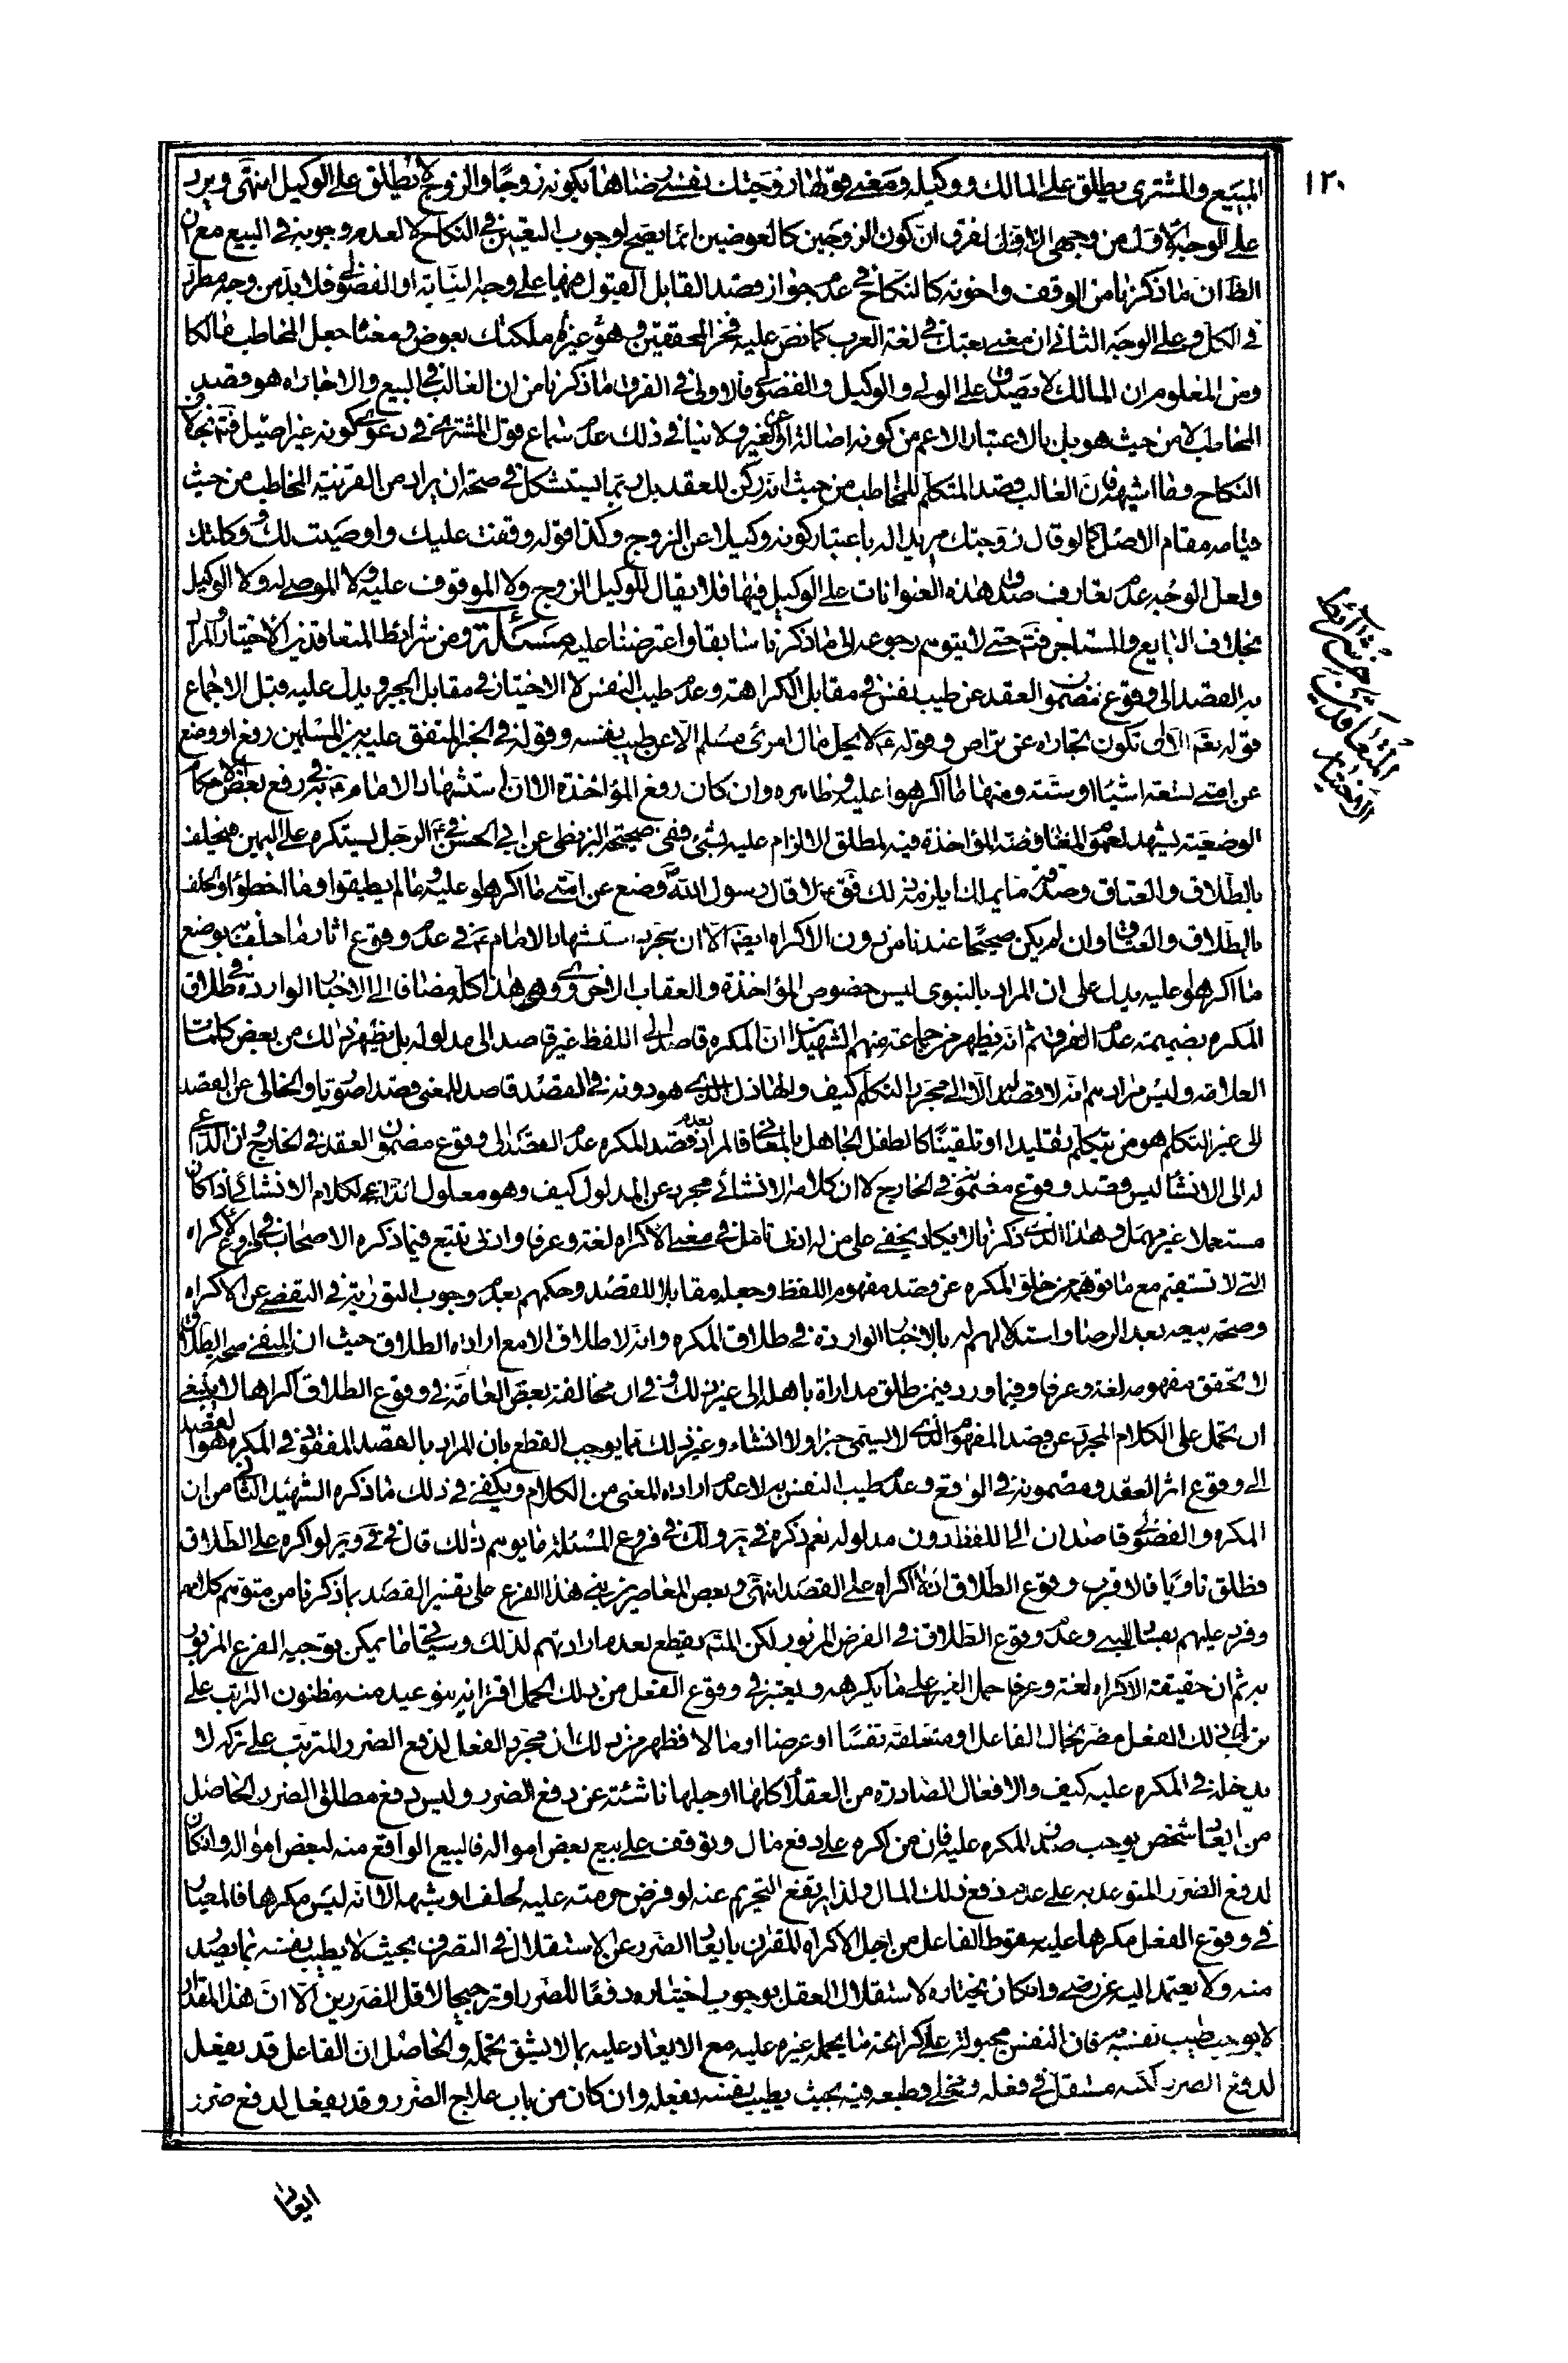 ١٢٠
المبيع والمشترى يطلق على المالك ووكيله ومعنى قولها زوجتك نفسى رضاها بكونه زوجا والزوج لا يطلق على الوكيل انتهى ويرد
على الوجه الاول من وجهى الفرق ان كون الزوجين كالعوضين انما يصح لوجوب التعيين فى النكاح لا لعدم وجوبه فى البيع مع ان
الظ ان ما ذكرنا من الوقف واخوته كالنكاح فى عدم جواز قصد القابل القبول فيها على وجه النيابة او الفضولى فلا بد من وجه مطرد
فى الكل وعلى الوجه الثانى ان معنى بعتك فى لغة العرب كما نص عليه فخر المحققين وهو غيره ملكتك بعوض ومعناه جعل المخاطب مالكا
ومن المعلوم ان المالك لا يصدق على الولى والوكيل والفضولى فالاولى فى الفرق ما ذكرنا من ان الغالب فى البيع والاجاره هو قصد
المخاطب لا من حيث هو بل بالاعتبار الاعم من كونه اصالة او عن الغير ولا ينافى ذلك عدم سماع قول المشترى فى دعوى كونه غير اصيل فتم بخلاف
النكاح وما اشبهه فان الغالب قصد المتكلم للمخاطب من حيث انه ركن للعقد بل ربما يستشكل فى صحة ان يراد من القرينة المخاطب من حيث
قيامه مقام الاصل كما لو قال زوجتك مريدا له باعتبار كونه وكيلا عن الزوج وكذا قوله وقفت عليك واوصيت لك ووكلتك
ولعل الوجه عدم تعارف صدق هذه العنوانات على الوكيل فيها فلا يقال للوكيل الزوج ولا الموقوف عليه ولا الموصى له ولا الوكيل
بخلاف البايع والمستاجر فتم حتى لا يتوهم رجوعه الى ما ذكرنا سابقا واعترضنا عليه مسئلة ومن شرائط المتعاقدين الاختيار والمراد
به القصد الى وقوع مضمون العقد عن طيب نفس فى مقابل الكراهة وعدم طيب النفس لا الاختيار فى مقابل الجبر ويدل عليه قبل الاجماع
قوله تعم الا ان تكون تجارة عن تراض وقوله ع لا يحل مال امرئ مسلم الا عن طيب نفسه وقوله فى الخبر المتفق عليه بين المسلمين رفع او وضع
عن امتى تسعة اشياء او ستة ومنها ما اكرهوا عليه وظاهره وان كان رفع المؤاخذة الا ان استشهاد الامام ع به فى رفع بعض الاحكام
الوضعية يشهد لعموم المؤاخذة فيه لمطلق الالزام عليه بشئ ففى صحيحة البزنطى عن ابى الحسن ع فى الرجل يستكره على اليمين فيحلف
بالطلاق والعتاق وصدقة ما يملك ايلزمه ذلك فق ع لا قال رسول الله ص وضع عن امتى ما اكرهوا عليه وما لم يطيقوا وما اخطؤا والحلف
بالطلاق والعتاق وان لم يكن صحيحا عندنا من دون الاكراه ايضا الا ان مجرد استشهاد الامام ع فى عدم وقوع اثار ما حلف به بوضع
ما اكرهوا عليه يدل على ان المراد بالنبوى ليس خصوص المؤاخذة والعقاب الاخروى هذا كله مضافا الى الاخبار الواردة فى طلاق
المكره بضميمة عدم الفرق ثم انه يظهر من جماعة منهم الشهيدان ان المكره قاصد الى اللفظ غير قاصد الى مدلوله بل يظهر ذلك من بعض كلمات
العلامة وليس مرادهم انه لا قصد له الا الى مجرد التكلم كيف والهازل الذى هو دونه فى القصد قاصد للمعنى قصدا صوريا والخالى عن القصد
الى غير التكلم هو من يتكلم تقليدا او تلقينا كالطفل الجاهل بالمعانى فالمراد بعدم قصد المكره عدم القصد الى وقوع مضمون العقد فى الخارج وان الداعى
له الى الانشاء ليس قصد وقوع مضمونه فى الخارج لا ان كلامه الانشائى مجرد عن المدلول كيف وهو معلول للكلام الانشائى اذا كان
مستعملا غير مهمل وهذا الذى ذكرنا لا يكاد يخفى على من له ادنى تامل فى معنى الاكراه لغة وعرفا وادنى تتبع فيما ذكره الاصحاب فى فروع الاكراه
التى لا تستقيم مع ما توهم من خلو المكره عن قصد مفهوم اللفظ وجعله مقابلا للقصد وحكمهم بعدم وجوب التورية فى التفصى عن الاكراه
وصحة بيعه بعد الرضا واستدلالهم له بالاخبار الواردة فى طلاق المكره وانه لا طلاق الا مع ارادة الطلاق حيث ان المنفى صحة الطلاق
لا تحقق مفهومه لغة وعرفا وفيما ورد فيمن طلق مداراة باهله الى غير ذلك وفى ان مخالفة بعض العامة فى وقوع الطلاق اكراها لا ينبغى
ان تحمل على الكلام المجرد عن قصد المفهوم الذى لا يسمى خبرا ولا انشاء وغير ذلك مما يوجب القطع بان المراد بالقصد المفقود فى المكره هو القصد
الى وقوع اثر العقد ومضمونه فى الواقع وعدم طيب النفس به لا عدم ارادة المعنى من الكلام ويكفى فى ذلك ما ذكره الشهيد الثانى من ان
المكره والفضولى قاصدان الى اللفظ دون مدلوله نعم ذكر فى ير ولك فى فروع المسئلة ما يوهم ذلك قال فى ير لو اكره على الطلاق
فطلق ناويا فالاقرب وقوع الطلاق اذ لا اكراه على القصد انتهى وبعض المعاصرين بنى هذا الفرع على تفسير القصد بما ذكرنا من متوهم كلامهم
فرد عليهم بفساد المبنى وعدم وقوع الطلاق فى الفرض المزبور لكن المتتبع يقطع بعدم ارادتهم لذلك وسيجئ ما يمكن توجيه الفرع المزبور
به ثم ان حقيقة الاكراه لغة وعرفا حمل الغير على ما يكرهه ويعتبر فى وقوع الفعل من ذلك الحمل اقترانه بتوعيد منه مظنون الترتب على
ترك ذلك الفعل مضر بحال الفاعل او متعلقه نفسا او عرضا او مالا فظهر من ذلك ان مجرد الفعل لدفع الضرر المترتب على تركه لا
يدخله فى المكره عليه كيف والافعال الصادرة من العقلاء كلها او جلها ناشئة عن دفع الضرر وليس دفع مطلق الضرر الحاصل
من ايعاد شخص يوجب صدق المكره عليه فان من اكره على دفع مال وتوقف على بيع بعض امواله فالبيع الواقع منه لبعض امواله وان كان
لدفع الضرر المتوعد به على عدم دفع ذلك المال ولذا يرتفع التحريم عنه لو فرض حرمته عليه لحلف او شبهه الا انه ليس مكرها فالمعيار
فى وقوع الفعل مكرها عليه سقوط الفاعل من اجل الاكراه المقترن بايعاد الضرر عن الاستقلال فى التصرف بحيث لا يطيب نفسه بما يصدر
منه ولا يعتمد اليه عن رضى وان كان يختاره لاستقلال العقل بوجوب اختياره دفعا للضرر او ترجيحا لاقل الضررين الا ان هذا المقدار
لا يوجب طيب نفسه به فان النفس مجبولة على كراهة ما يحمله غيره عليه مع الايعاد عليه بما لا يشق تحمله والحاصل ان الفاعل قد يفعل
لدفع الضرر لكنه مستقل فى فعله ومخلى وطبعه فيه بحيث يطيب نفسه بفعله وان كان من باب علاج الضرر وقد يفعل لدفع ضرر
ايعاد
من شرائط
المتعاقدين
الاختيار